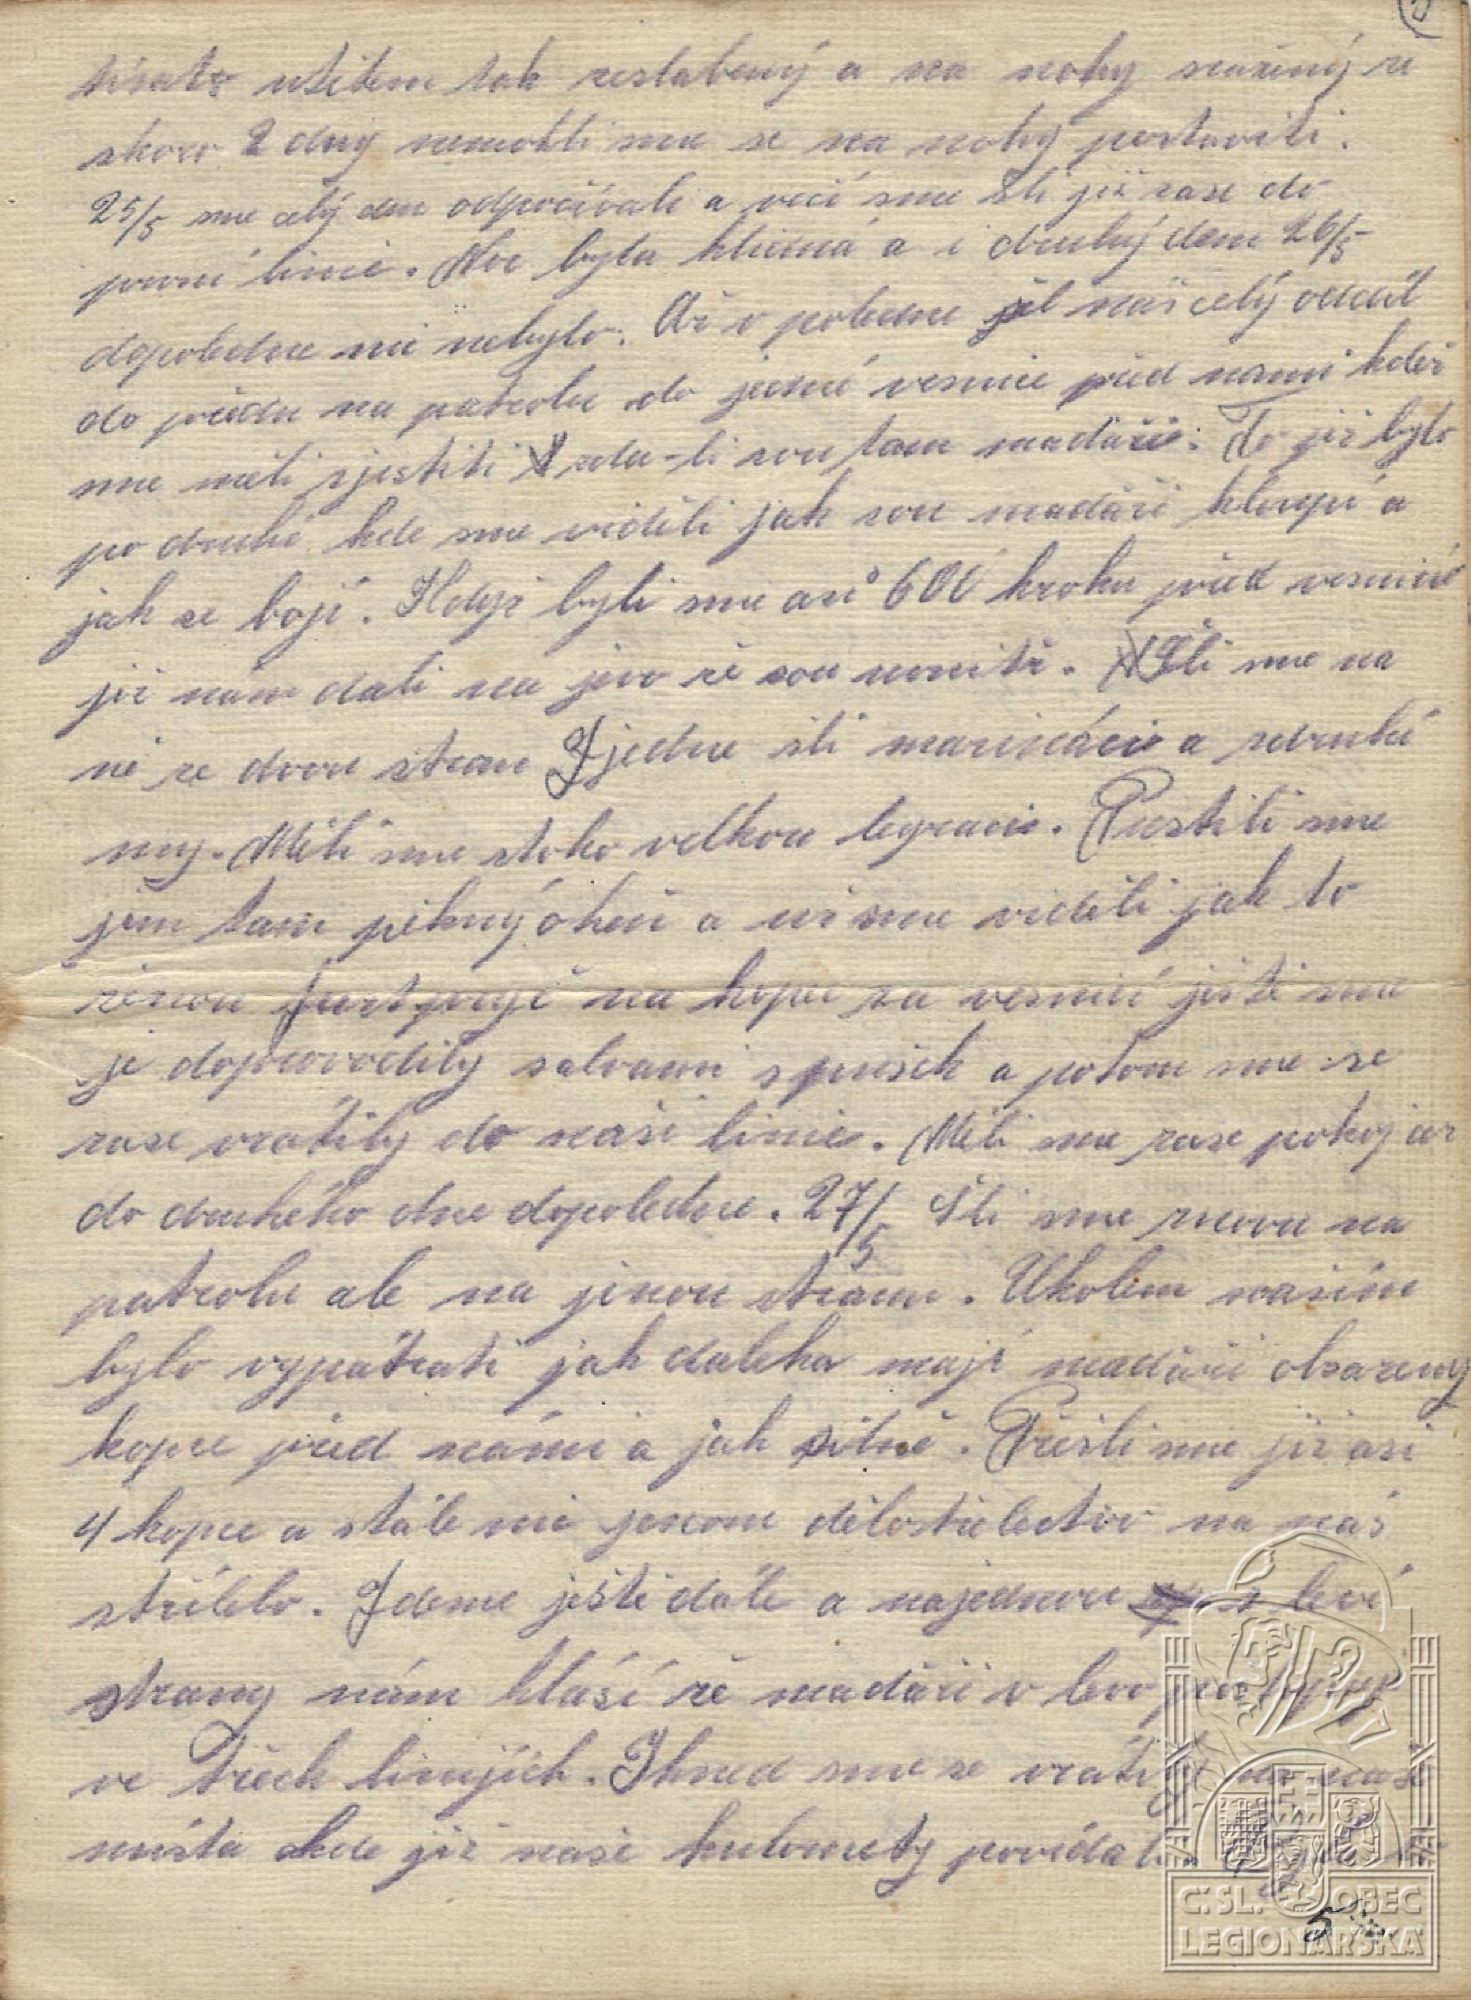 užitem tak zeslabený a na nohy zničený že
skoro 2 dny nemohli sme se na nohy postaviti.
25/5 sme celý den odpočívali a več sme šli již zase do
první linie. Noc byla klidná a i druhý den 26/5
dopoledne nic nebylo. Až v poledne šel náš celý oddíl
do předu na patrolu do jedné vesnice před nami kdež
sme měli zjistiti zda-li sou tam madáři. To již bylo
po druhé kde sme viděli jak sou madáři hloupí a
jak se bojí. Když byli sme asi 600 kroku před vesnicí
již nám dali na jevo že sou uvnitř. Šli sme na
ně ze dvou stran Z jedne šli marináci a zdruhé
my. Měli sme stoho velkou legraci. Pustili sme
jim tam pěkný óheň a už sme viděli jak to
ženou furt pryč na kopec za vesnicí ještě sme
je doprovodily salvami spušek a potom sme se
zase vrátily do naší linie. Měli sme zase pokoj až
do druhého dne dopoledne. 27/5 Šli sme znovu na
patrolu ale na jinou stranu. Ukolem naším
bylo vypátrati jak daleko mají madáři obsazeny
kopce před námi a jak silně. Přešli sme již asi
4 kopce a stále nic jenom dělostřelectvo na nás
střílelo. Jdeme ještě dále a najednou s levé
strany nám hlásí že madáři v levo
ve třech linijích. Ihned sme se vrátily na naše
místa kde již naše kulomety povídaly
5
Č.SL. OBEC
LEGIONÁŘSKÁ